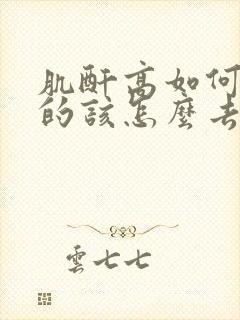 肌酐高如何
的該怎麼去
雲七七